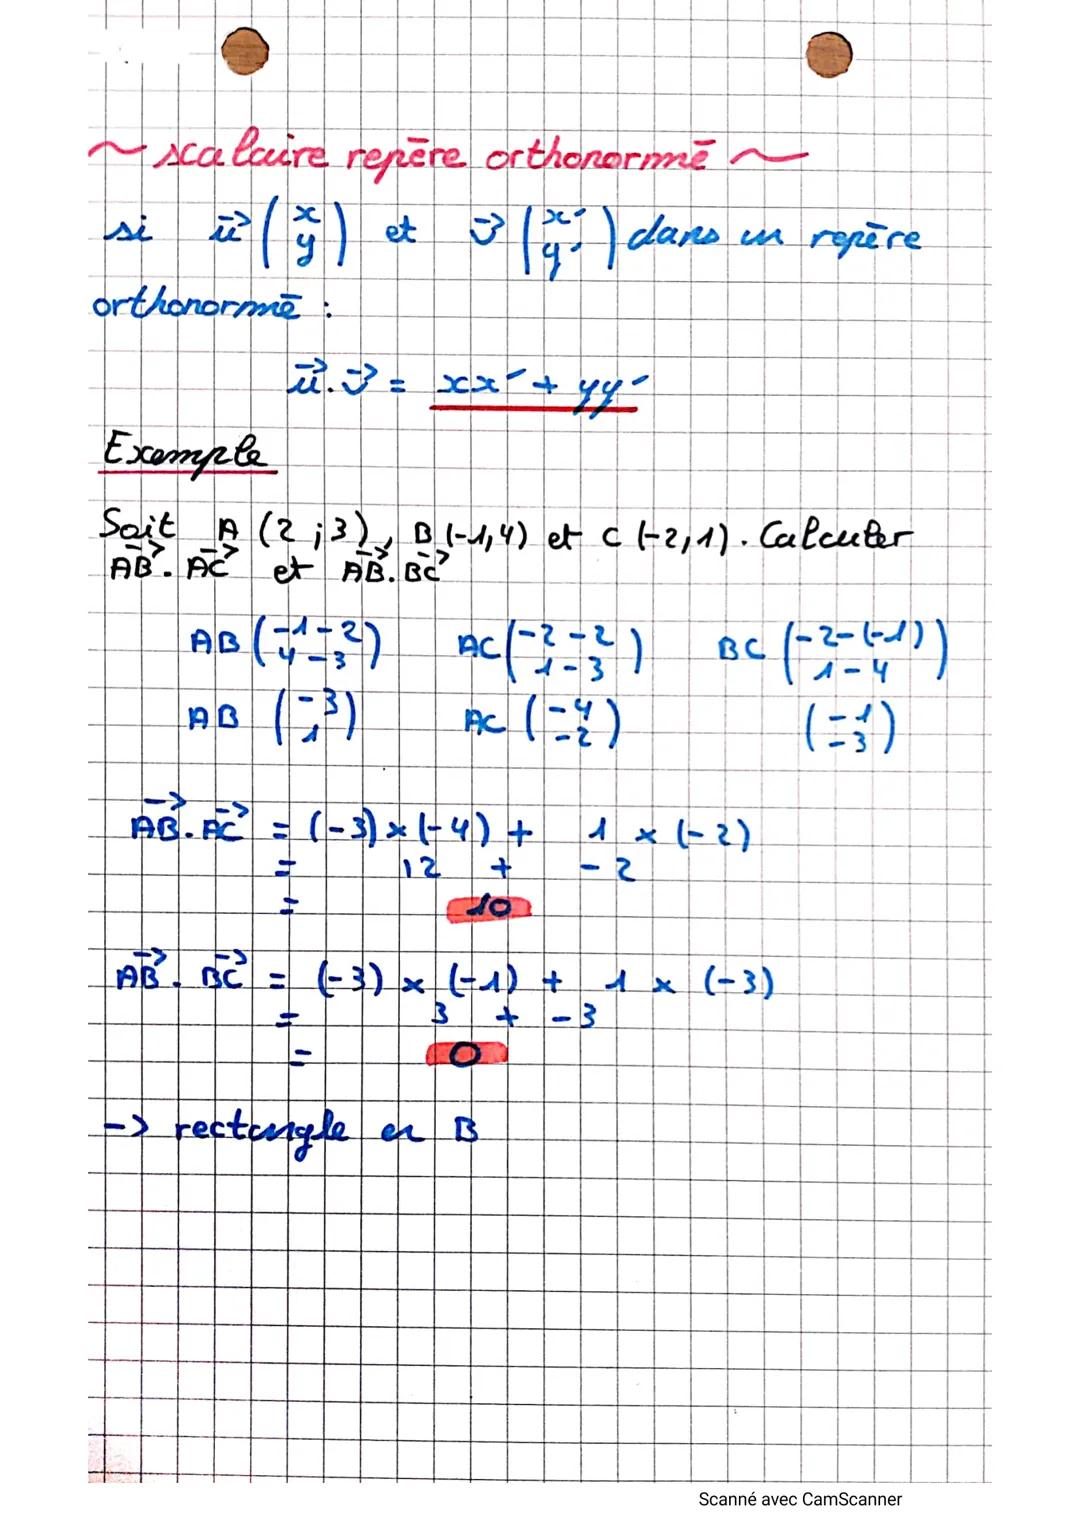 ~ scalaire repère orthonormé ~
si u⃗ (x y) et v⃗ (x' y') dans un repère
orthonormé :
u⃗.v⃗ = xx' + yy'
Exemple
Soit A (2 ;3), B (-1,4) et C (-2,1). Calculer
AB⃗. AC⃗ et AB⃗. BC⃗
AB (-1-2 4-3) AC (-2-2 1-3) BC (-2-(-1) 1-4)
AB (-3 1) AC (-4 -2) (-1 -3)
AB⃗. AC⃗ = (-3) × (-4) + 1 × (-2)
= 12 + -2
= 10
AB⃗. BC⃗ = (-3) × (-1) + 1 × (-3)
= 3 + -3
= 0
-> rectangle en B
Scanné avec CamScanner